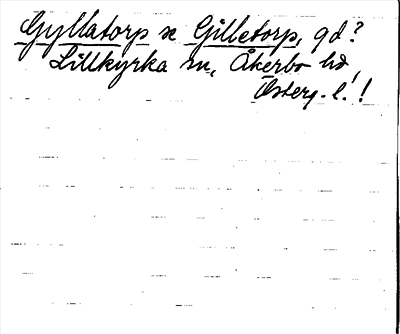 Gyllatorp se Gilletorp, gd?
Lillkyrka sn, Åkerbo hd,
Österg. l.!